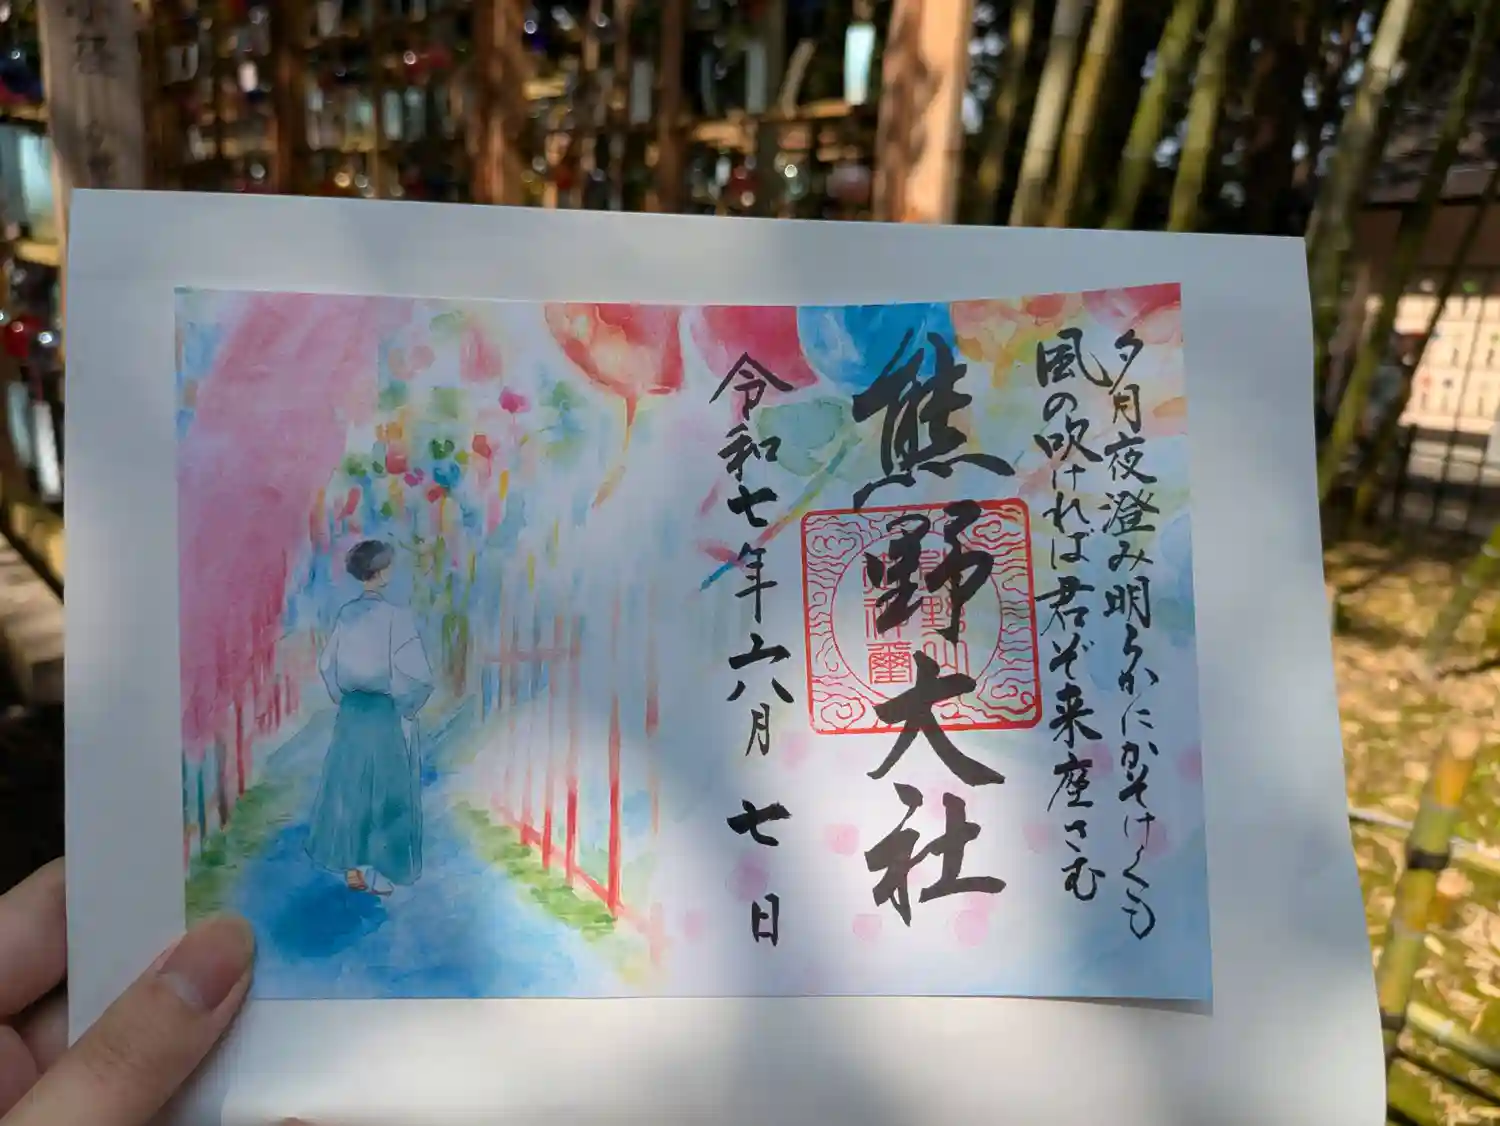 夕月夜澄み明らかにかそけくも
風の吹ければ君ぞ来座さむ
熊野大社
令和七年六月七日